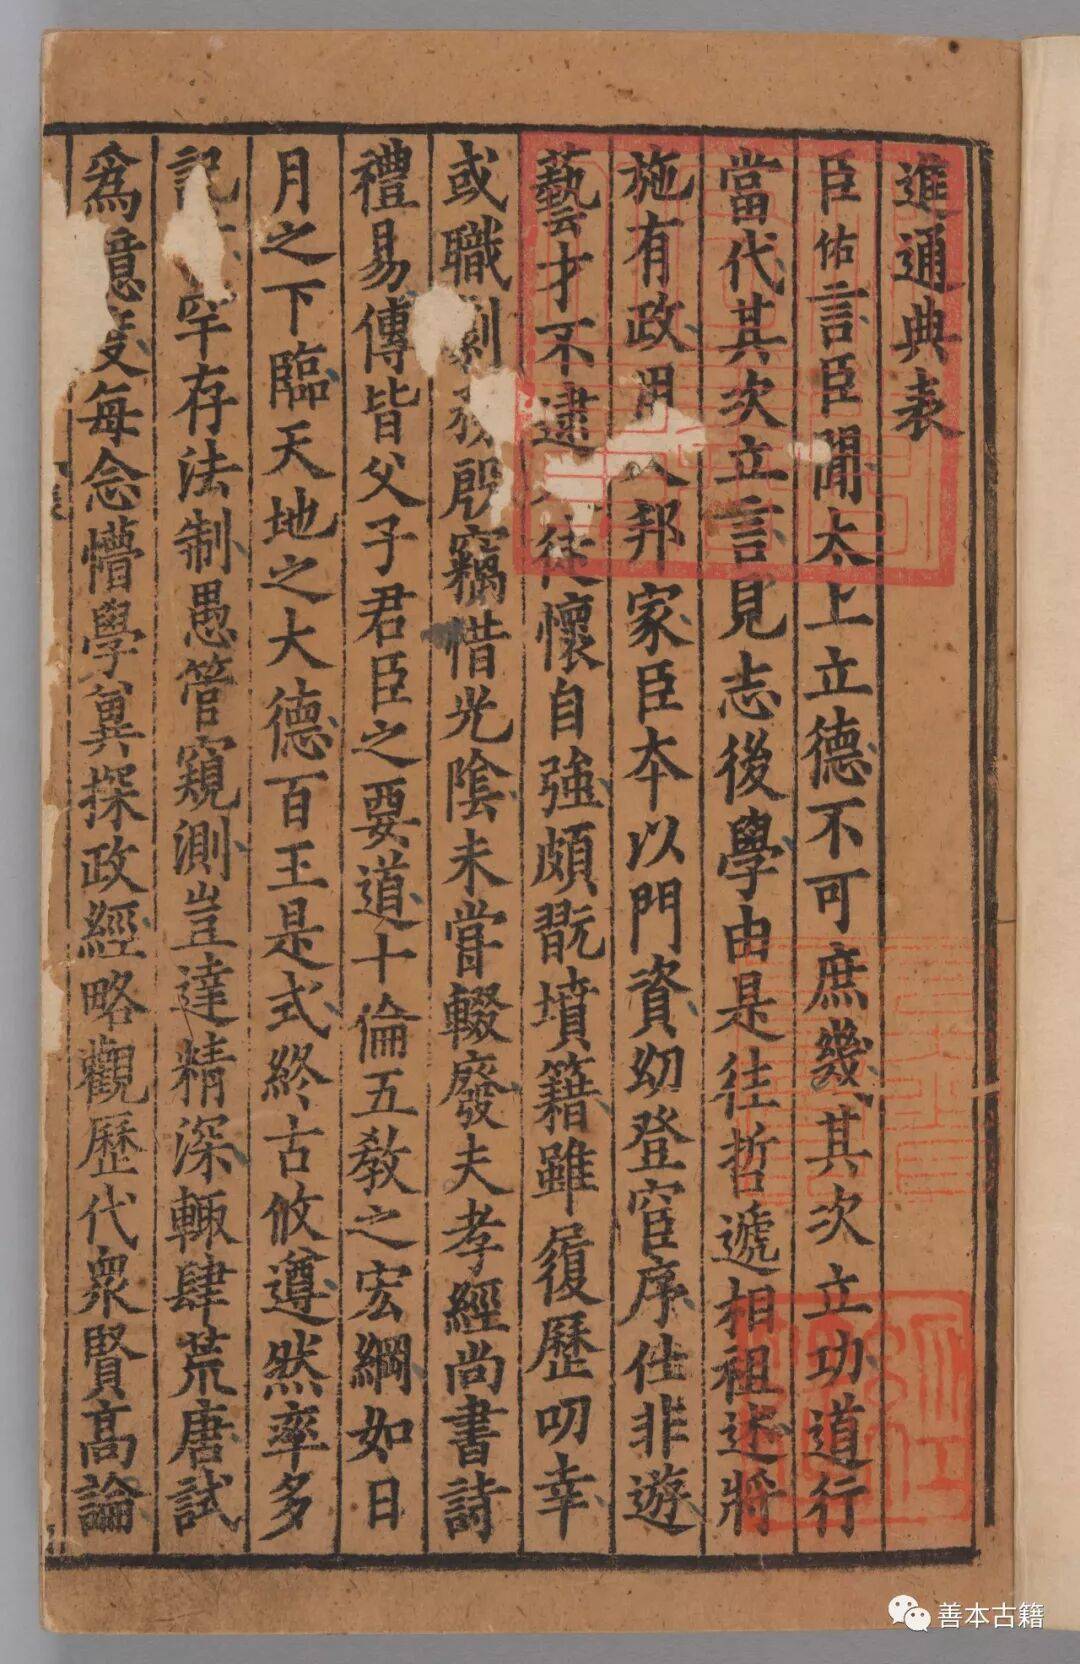 進通典表
臣佑言臣聞太上立德不可庶幾其次立功道行
當代其次立言見志後學由是徃哲遞相祖述將
施有政用乂邦家臣本以門資幼登官序仕非遊
藝才不逮人徒懷自強頗翫墳籍雖履歷叨幸
或職劇務殷竊惜光陰未甞輟廢夫孝經尚書詩
禮易傳皆父子君臣之要道十倫五教之宏綱如日
月之下臨天地之大德百王是式終古攸遵然率多
記言罕存法制愚管窺測豈達精深輙肆荒唐試
為億度每念懵學冀探政經略觀歷代衆賢高論
善本古籍